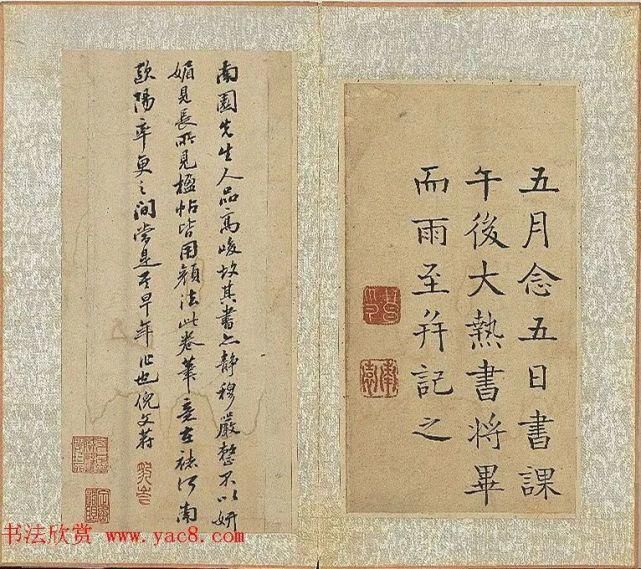 五月念五日書課
午後大熱書將畢
而雨至并記之
南園先生人品高峻故其書亦静穆嚴整不以妍
媚見長所見楹帖皆用顏法此卷筆意在褚河南
歐陽率更之間當是其早年作也倪文蔚
书法欣赏 www.yac8.com